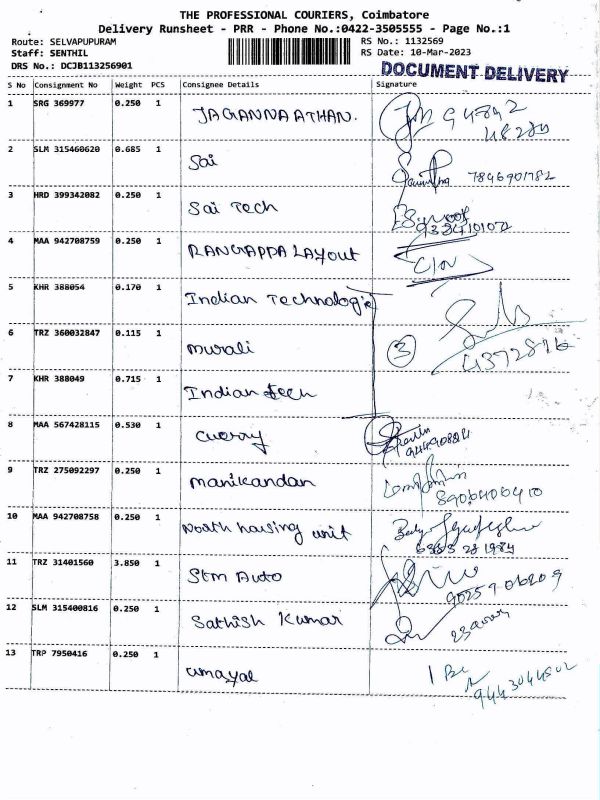 THE PROFESSIONAL COURIERS, Coimbatore
Delivery Runsheet - PRR - Phone No.:0422-3505555 - Page No.:1
Route: SELVAPUPURAM RS No.: 1132569
Staff: SENTHIL RS Date: 10-Mar-2023
DRS No.: DCJB113256901 DOCUMENT DELIVERY
S No Consignment No Weight PCS Consignee Details Signature
1 SRG 369977 0.250 1 JAGANNAATHAN.
2 SLM 315460620 0.685 1 Sai 7846901782
3 HRD 399342082 0.250 1 Sai Tech
4 MAA 942708759 0.250 1 RANGAPPA LAYOUT
5 KHR 388054 0.170 1 Indian Technologie
6 TRZ 360032847 0.115 1 murali 3
7 KHR 388049 0.715 1 Indian tech
8 MAA 567428115 0.530 1
9 TRZ 275092297 0.250 1 manikandan
10 MAA 942708758 0.250 1 north housing unit
11 TRZ 31401560 3.850 1 Stm Auto
12 SLM 315400816 0.250 1 Sathish Kumar
13 TRP 7950416 0.250 1 umayal